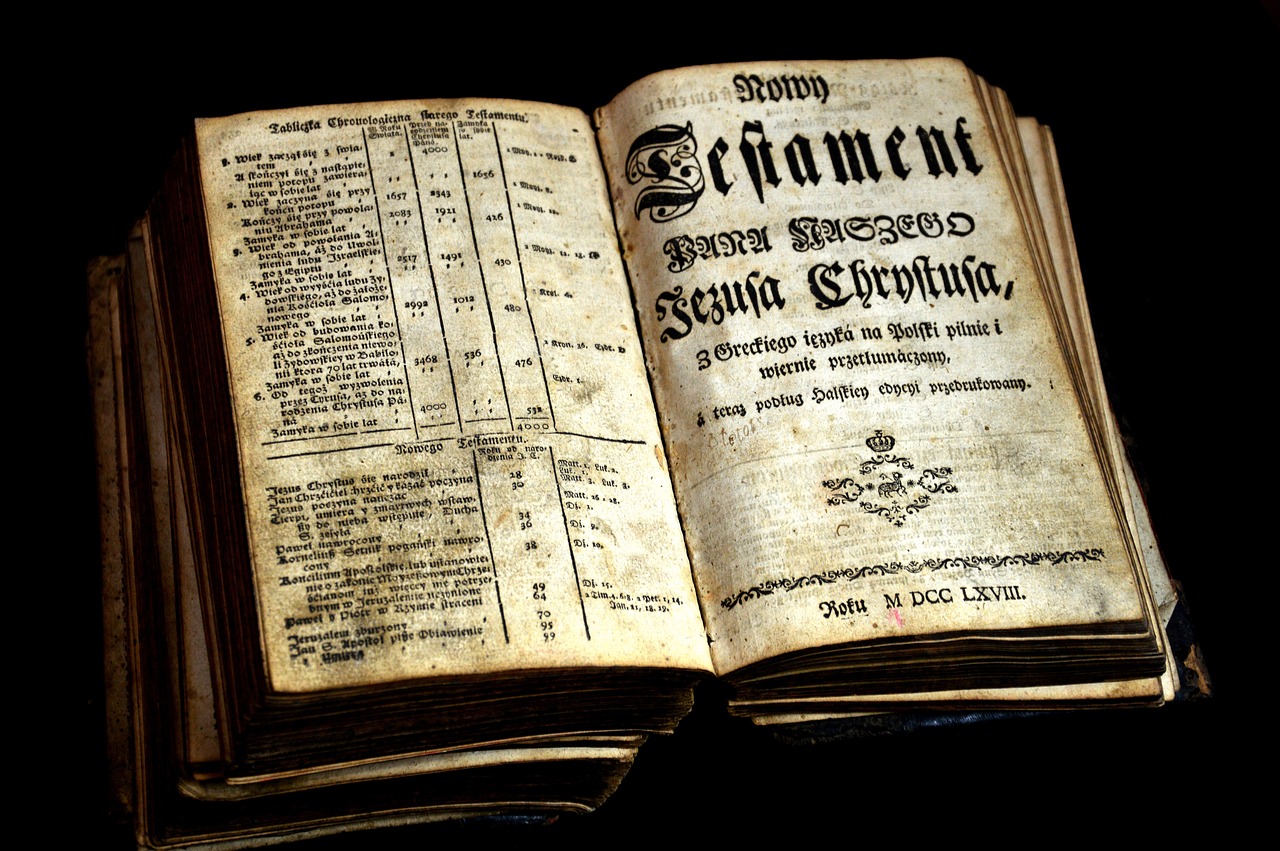 Tabliczka Chronologiczna starego Testamentu.
W Roku Swiata.
Przed na-
rodzeniem
Chrystusa
Pana.
Zamyka
w sobie
lat.
1. Wiek zaczął się z swia-
tem 4000
A skończył się z nastąpie-
niem potopu zawiera-
iąc w sobie lat 1656
2. Wiek zaczyna się przy
końcu potopu 1657 2343
Kończy się przy powoła-
niu Abrahama 2083 1921
Zamyka w sobie lat 426
3. Wiek od powołania A-
brahama, aż do Uwol-
nienia ludu Izraelskie-
go z Egiptu 2517 1491
Zamyka w sobie lat 430
4. Wiek od wyyścia ludu Zy-
dowskiego, aż do założe-
nia Kościoła Salomo-
nowego 2992 1012
Zamyka w sobie lat 480
5. Wiek od budowania ko-
ścioła Salomońskiego
aż do zkończenia niewo-
li Zydowskiey w Babilo-
nii ktora 70 lat trwała, 3468 536
Zamyka w sobie lat 476
6. Od tegoż wyzwolenia
przez Cyrusa, aż do na-
rodzenia Chrystusa Pa-
na 4000
Zamyka w sobie lat 532
4000
Nowego Testamentu.
Roku od naro-
dzenia J. C.
Jezus Chrystus się narodził Matt. 1. Luk. 2.
Jan Chrzciciel chrzcić y kazać poczyna 28
Jezus poczyna nauczać 30
Cierpi, umiera y zmartwych wstaw-
szy do nieba wstępuie, Ducha
S. zsyła 34
Paweł nawrocony 36 Dz. 9.
Korneliusz Setnik pogański nawro-
cony 38 Dz. 10.
Koncilium Apostolskie, lub ustanowie-
nie o zakonie Moyzeszowym Chrze-
ścianom iuż więcey nie potrze-
bnym w Jeruzalemie uczynione 49 Dz. 15.
Paweł y Piotr w Rzymie straceni 64
Jeruzalem zburzony 70
Jan S. Apostoł pisze Obiawienie 95
y umiera 99
Nowy
Testament
PANA NASZEGO
Jezusa Chrystusa,
Z Greckiego ięzyká na Polski pilnie i
wiernie przetłumáczony,
á teraz podług Halskiey edycyi przedrukowany.
Roku M DCC LXVIII.